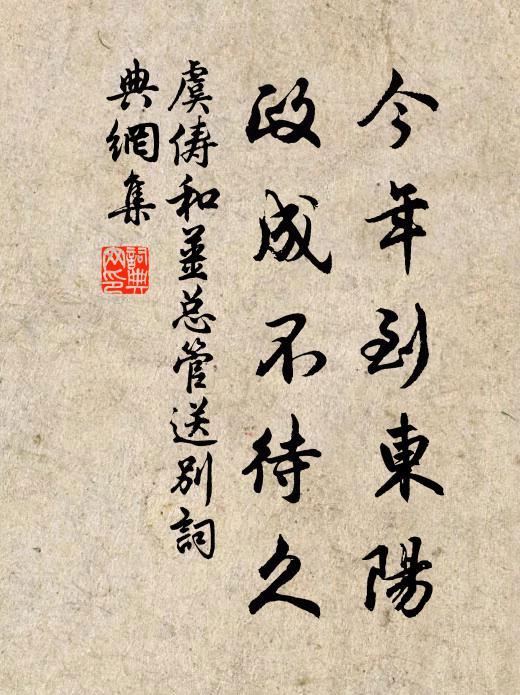 今年到東陽
政成不待久
虞俦和姜总管送别詞
典網集
詞典网印